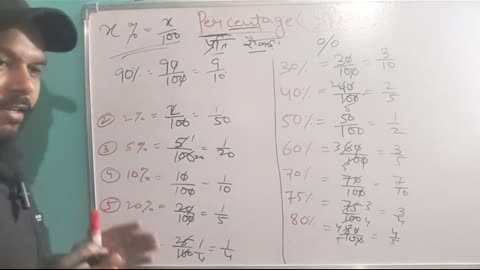 x % = x/100
Percentage (
प्रति सैकड़ा
%
90% = 90/100 = 9/10
② 2% = 2/100 = 1/50
③ 5% = 5/100 = 1/20
④ 10% = 10/100 = 1/10
⑤ 20% = 20/100 = 1/5
= 25/100 = 1/4
30% = 30/100 = 3/10
40% = 40/100 = 2/5
50% = 50/100 = 1/2
60% = 60/100 = 3/5
70% = 70/100 = 7/10
75% = 75/100 = 3/4
80% = 80/100 = 4/5